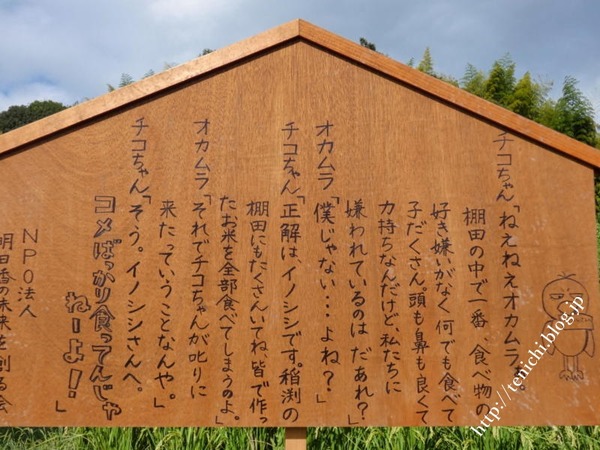 チコちゃん「ねえねえオカムラぁ。
棚田の中で一番、食べ物の
好き嫌いがなく何でも食べて
子だくさん。頭も鼻も良くて
力持ちなんだけど、私たちに
嫌われているのはだあれ？」
オカムラ「僕じゃない・・・よね？」
チコちゃん「正解は、イノシシです。稲渕の
棚田にもたくさんいてね皆で作っ
たお米を全部食べてしまうのよ。」
オカムラ「それでチコちゃんが叱りに
来たっていうことなんや。」
チコちゃん「そう。イノシシさんへ。
コメばっかり食ってんじゃ
ねーよ！」
NPO法人
明日香の未来を創る会
http://tenichi.blog.jp/